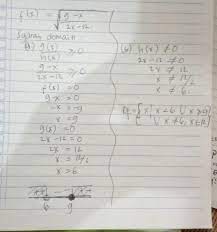 f(x) = √(9-x / 2x-12)
Syarat domain
① g(x)/h(x) ≥ 0
9-x / 2x-12 ≥ 0
f(x) = 0
9-x = 0
-x = -9
x = 9
g(x) = 0
2x-12 = 0
2x = 12
x = 12/2
x = 6
6 9
② h(x) ≠ 0
2x-12 ≠ 0
2x ≠ 12
x ≠ 12/2
x ≠ 6
x < 6
x ≠ 6, x ∈ R